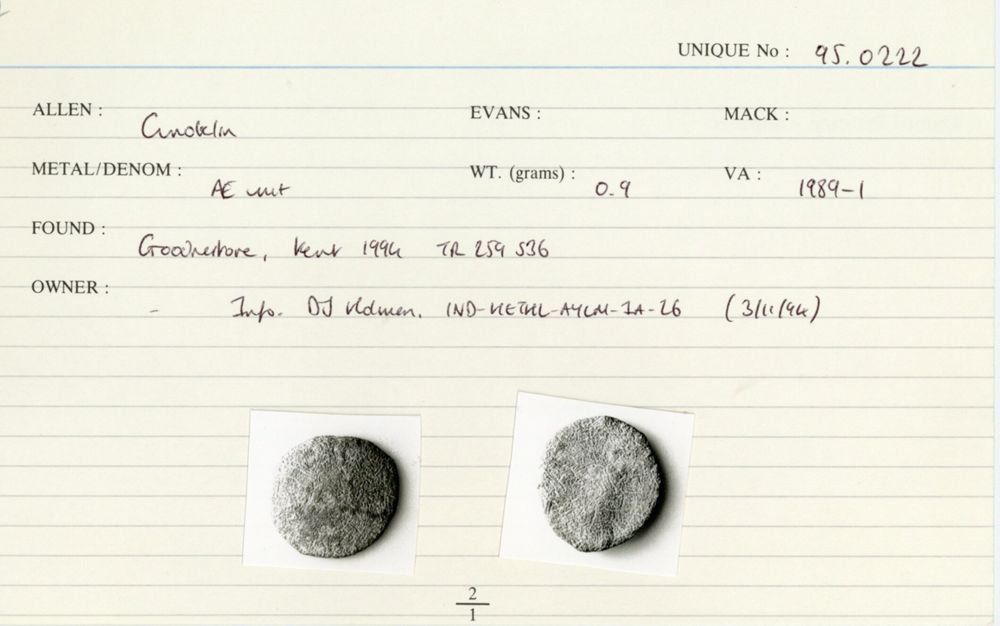 UNIQUE No : 95.0222
ALLEN : Cunobelin EVANS : MACK :
METAL/DENOM : AE unit WT. (grams) : 0.9 VA : 1989-1
FOUND : Goodnestone, Kent 1994 TR 259 536
OWNER : - Info. DJ Holman. (3/11/94)
2
1